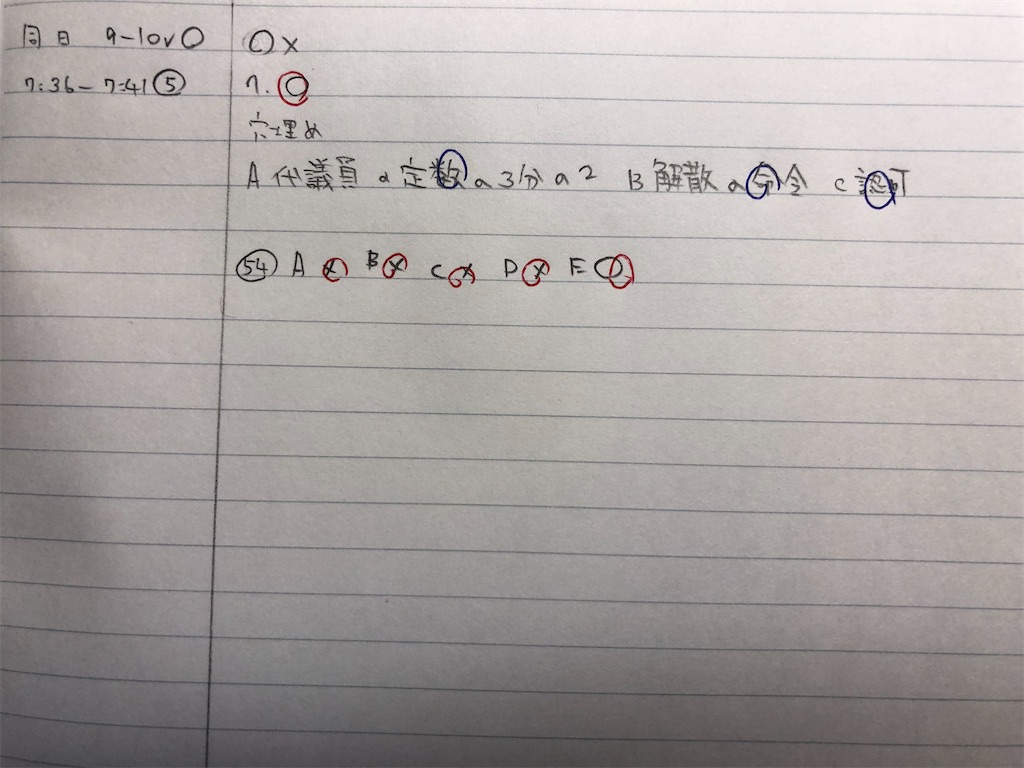 同日 9-10v〇
〇×
7:36-7:41⑤
7.〇
穴埋め
A 代議員の定数の3分の2 B 解散の命令 C 認可
㊴ A × B × C × D × E 〇